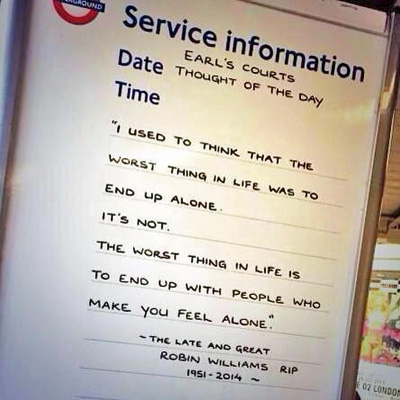 Service information
Date EARL'S COURTS
THOUGHT OF THE DAY
Time
"I USED TO THINK THAT THE
WORST THING IN LIFE WAS TO
END UP ALONE.
IT'S NOT.
THE WORST THING IN LIFE IS
TO END UP WITH PEOPLE WHO
MAKE YOU FEEL ALONE."
~ THE LATE AND GREAT
ROBIN WILLIAMS RIP
1951-2014 ~